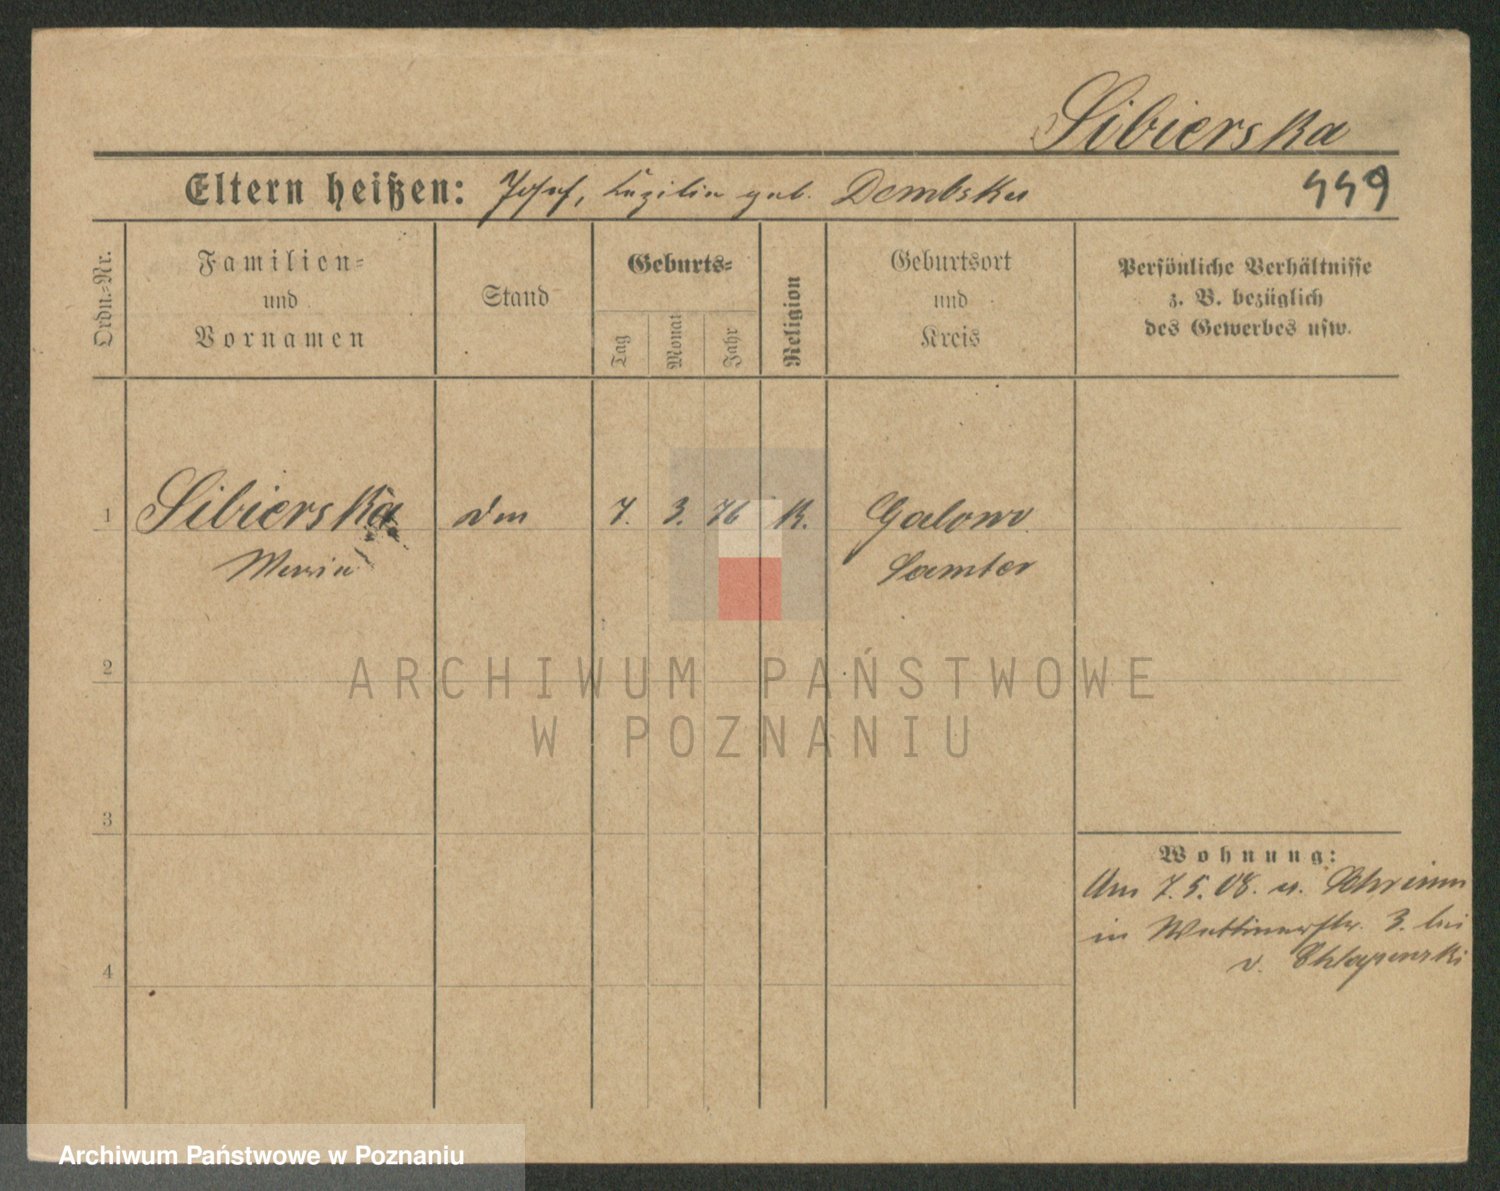 Sibierska
Eltern heißen: Josef, Cäzilia geb. Dembska
449
Ordn.-Nr.
Familien-
und
Vornamen
Stand
Geburts-
Tag
Monat
Jahr
Religion
Geburtsort
und
Kreis
Persönliche Verhältnisse
z. B. bezüglich
des Gewerbes usw.
1
Sibierska
7. 3. 76
K.
Galowo
Maria
Samter
ARCHIWUM PAŃSTWOWE
2
W POZNANIU
3
Wohnung:
Am 7.5.08. v. Schrimm
in 3. bei
4
v. Chlapowski
Archiwum Państwowe w Poznaniu